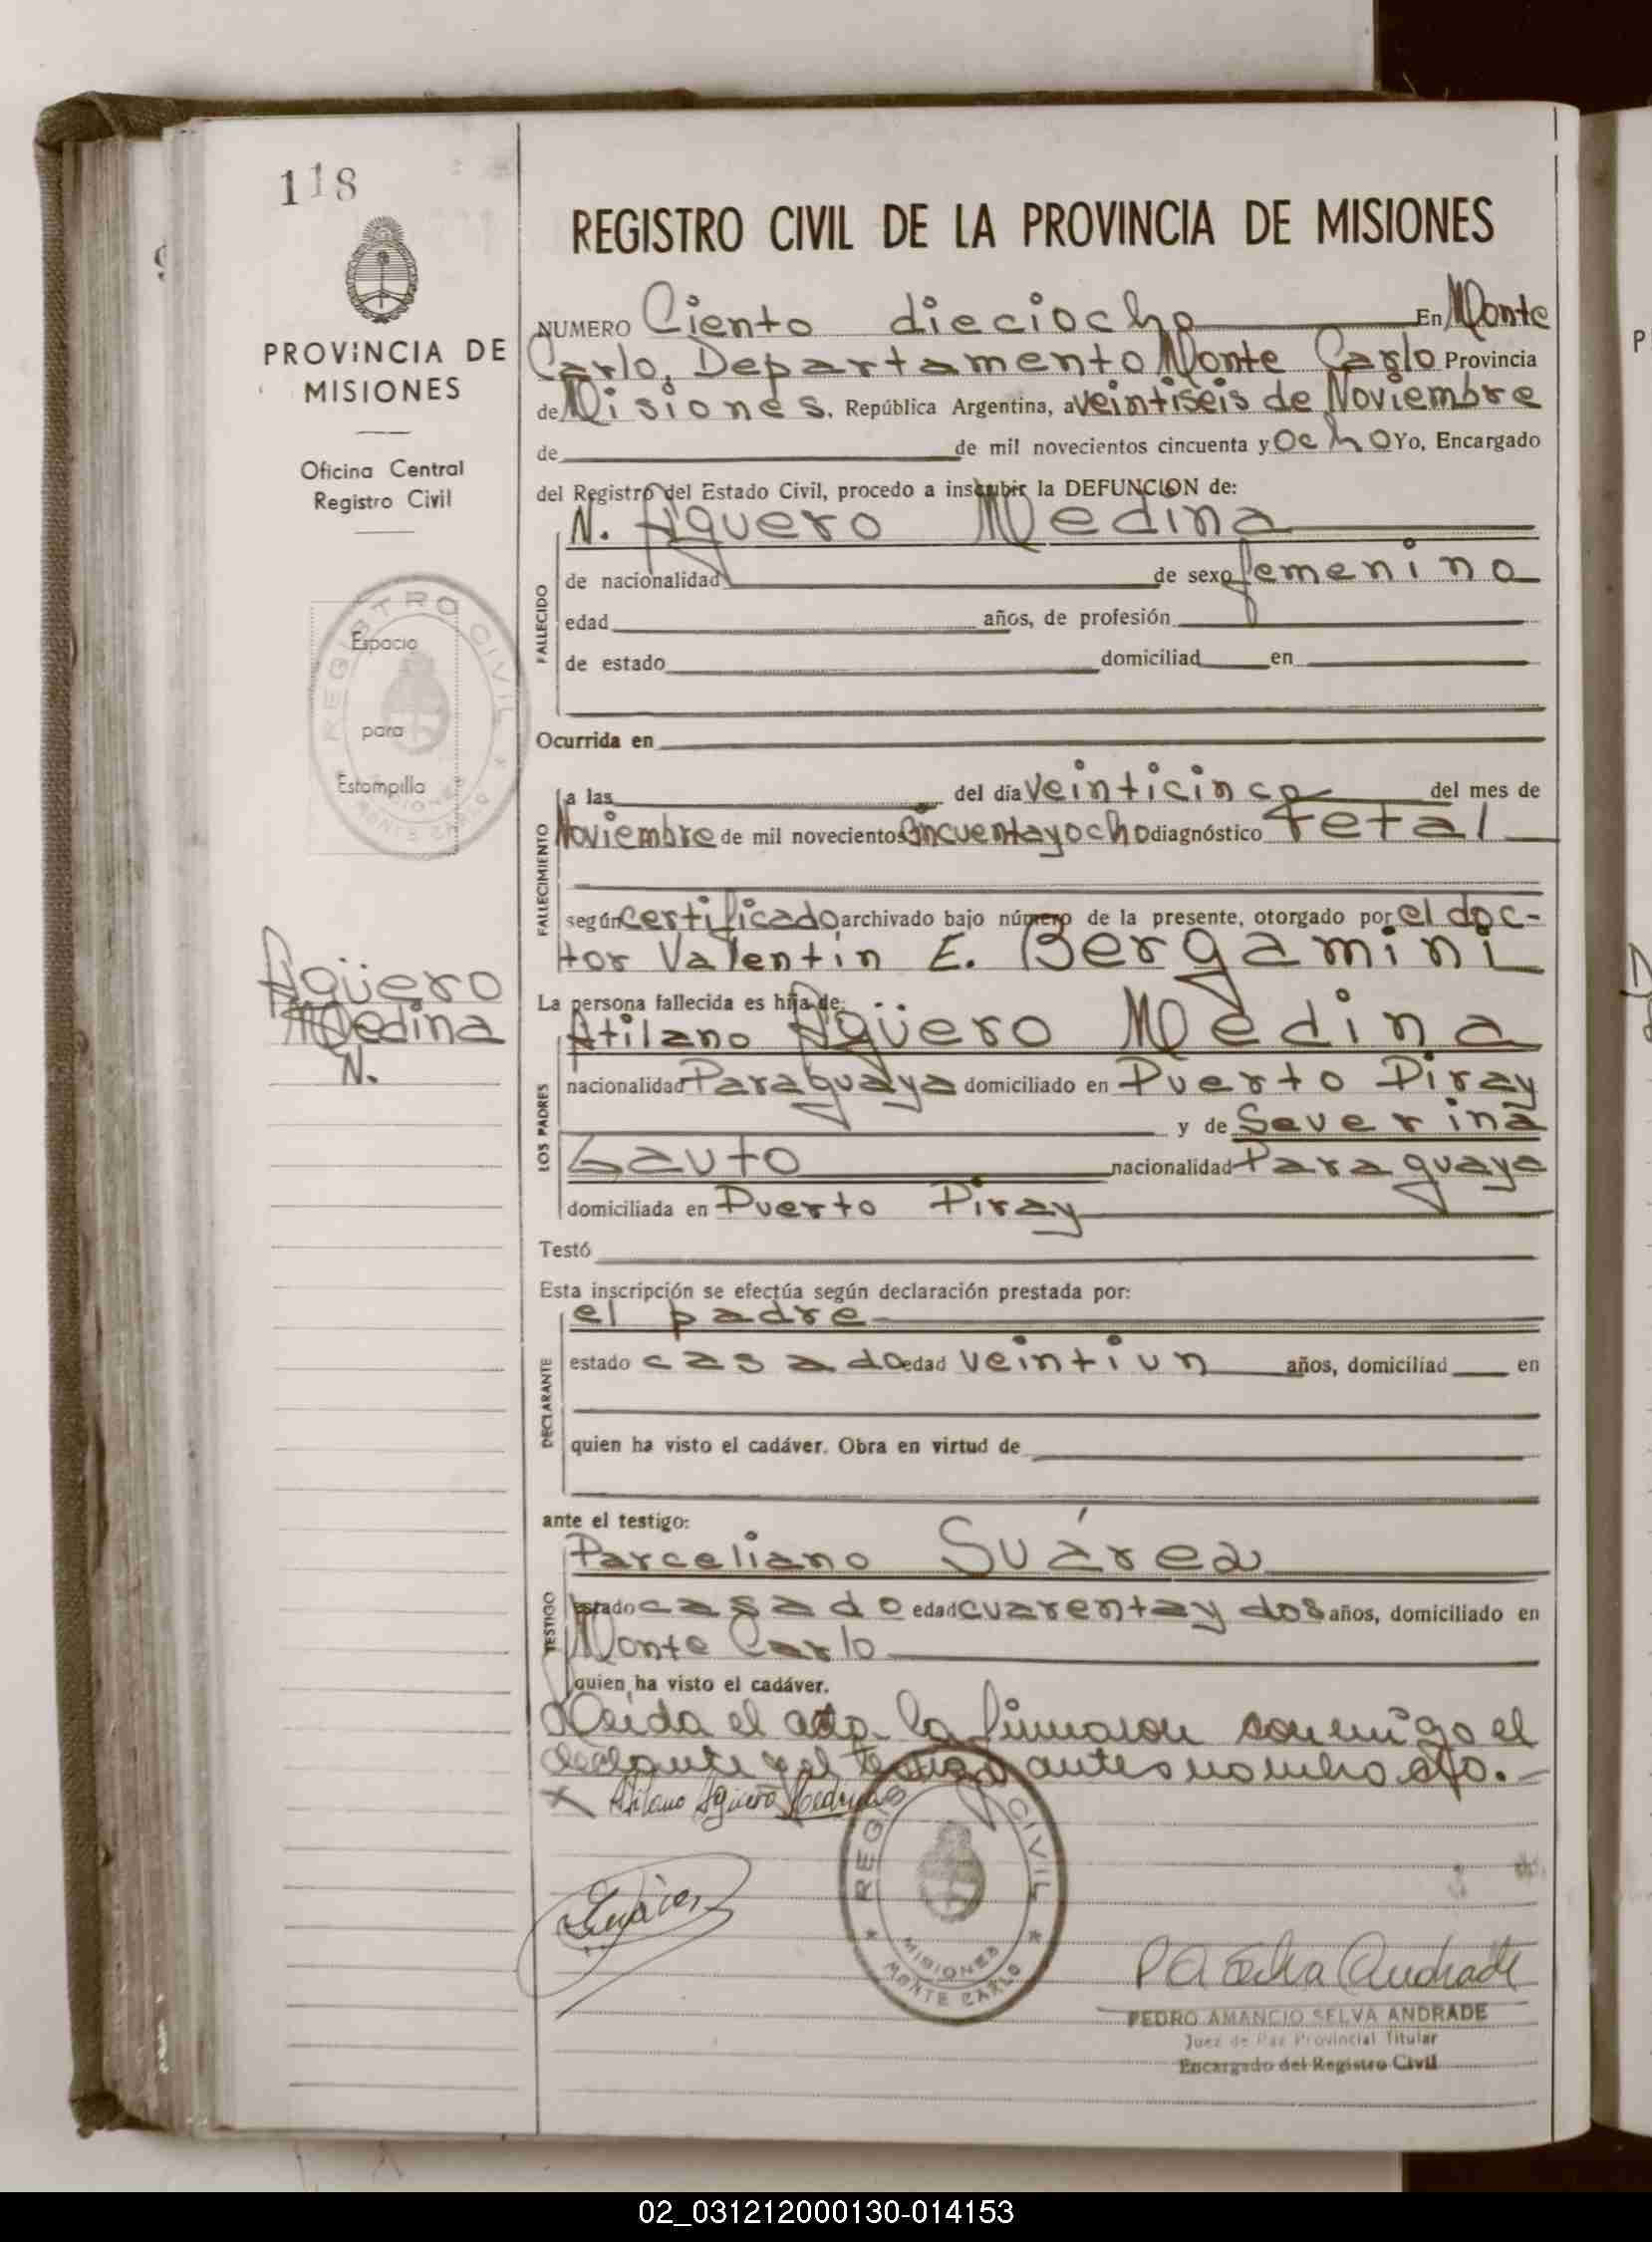 118
PROVINCIA DE
MISIONES
Oficina Central
Registro Civil
REGISTRO CIVIL
Espacio
para
Estampilla
MISIONES
MONTE CARLO
Agüero
Medina
N.
REGISTRO CIVIL DE LA PROVINCIA DE MISIONES
NUMERO Ciento dieciocho En Monte
Carlo, Departamento Monte Carlo Provincia
de Misiones, República Argentina, a veintiseis de Noviembre
de de mil novecientos cincuenta y ocho Yo, Encargado
del Registro del Estado Civil, procedo a inscribir la DEFUNCION de:
N. Aguero Medina
FALLECIDO
de nacionalidad de sexo femenino
edad años, de profesión
de estado domiciliad en
Ocurrida en
FALLECIMIENTO
a las del día veinticinco del mes de
Noviembre de mil novecientos cincuenta y ocho diagnóstico fetal
según certificado archivado bajo número de la presente, otorgado por el doc-
tor Valentin E. Bergamini
La persona fallecida es hija de:
LOS PADRES
Atilano Agüero Medina
nacionalidad Paraguaya domiciliado en Puerto Piray
y de Severina
Gauto nacionalidad Paraguaya
domiciliada en Puerto Piray
Testó
Esta inscripción se efectúa según declaración prestada por:
DECLARANTE
el padre
estado casado edad veintiun años, domiciliad en
quien ha visto el cadáver. Obra en virtud de
ante el testigo:
TESTIGO
Parceliano Suárez
estado casado edad cuarenta y dos años, domiciliado en
Monte Carlo
quien ha visto el cadáver.
Leida el acta la firmaron conmigo el
y el testigo antes nombrado.
X Atilano Agüero Medina
REGISTRO CIVIL
MISIONES
MONTE CARLO
P A Selva Andrade
PEDRO AMANCIO SELVA ANDRADE
Juez de Paz Provincial Titular
Encargado del Registro Civil
02_031212000130-014153